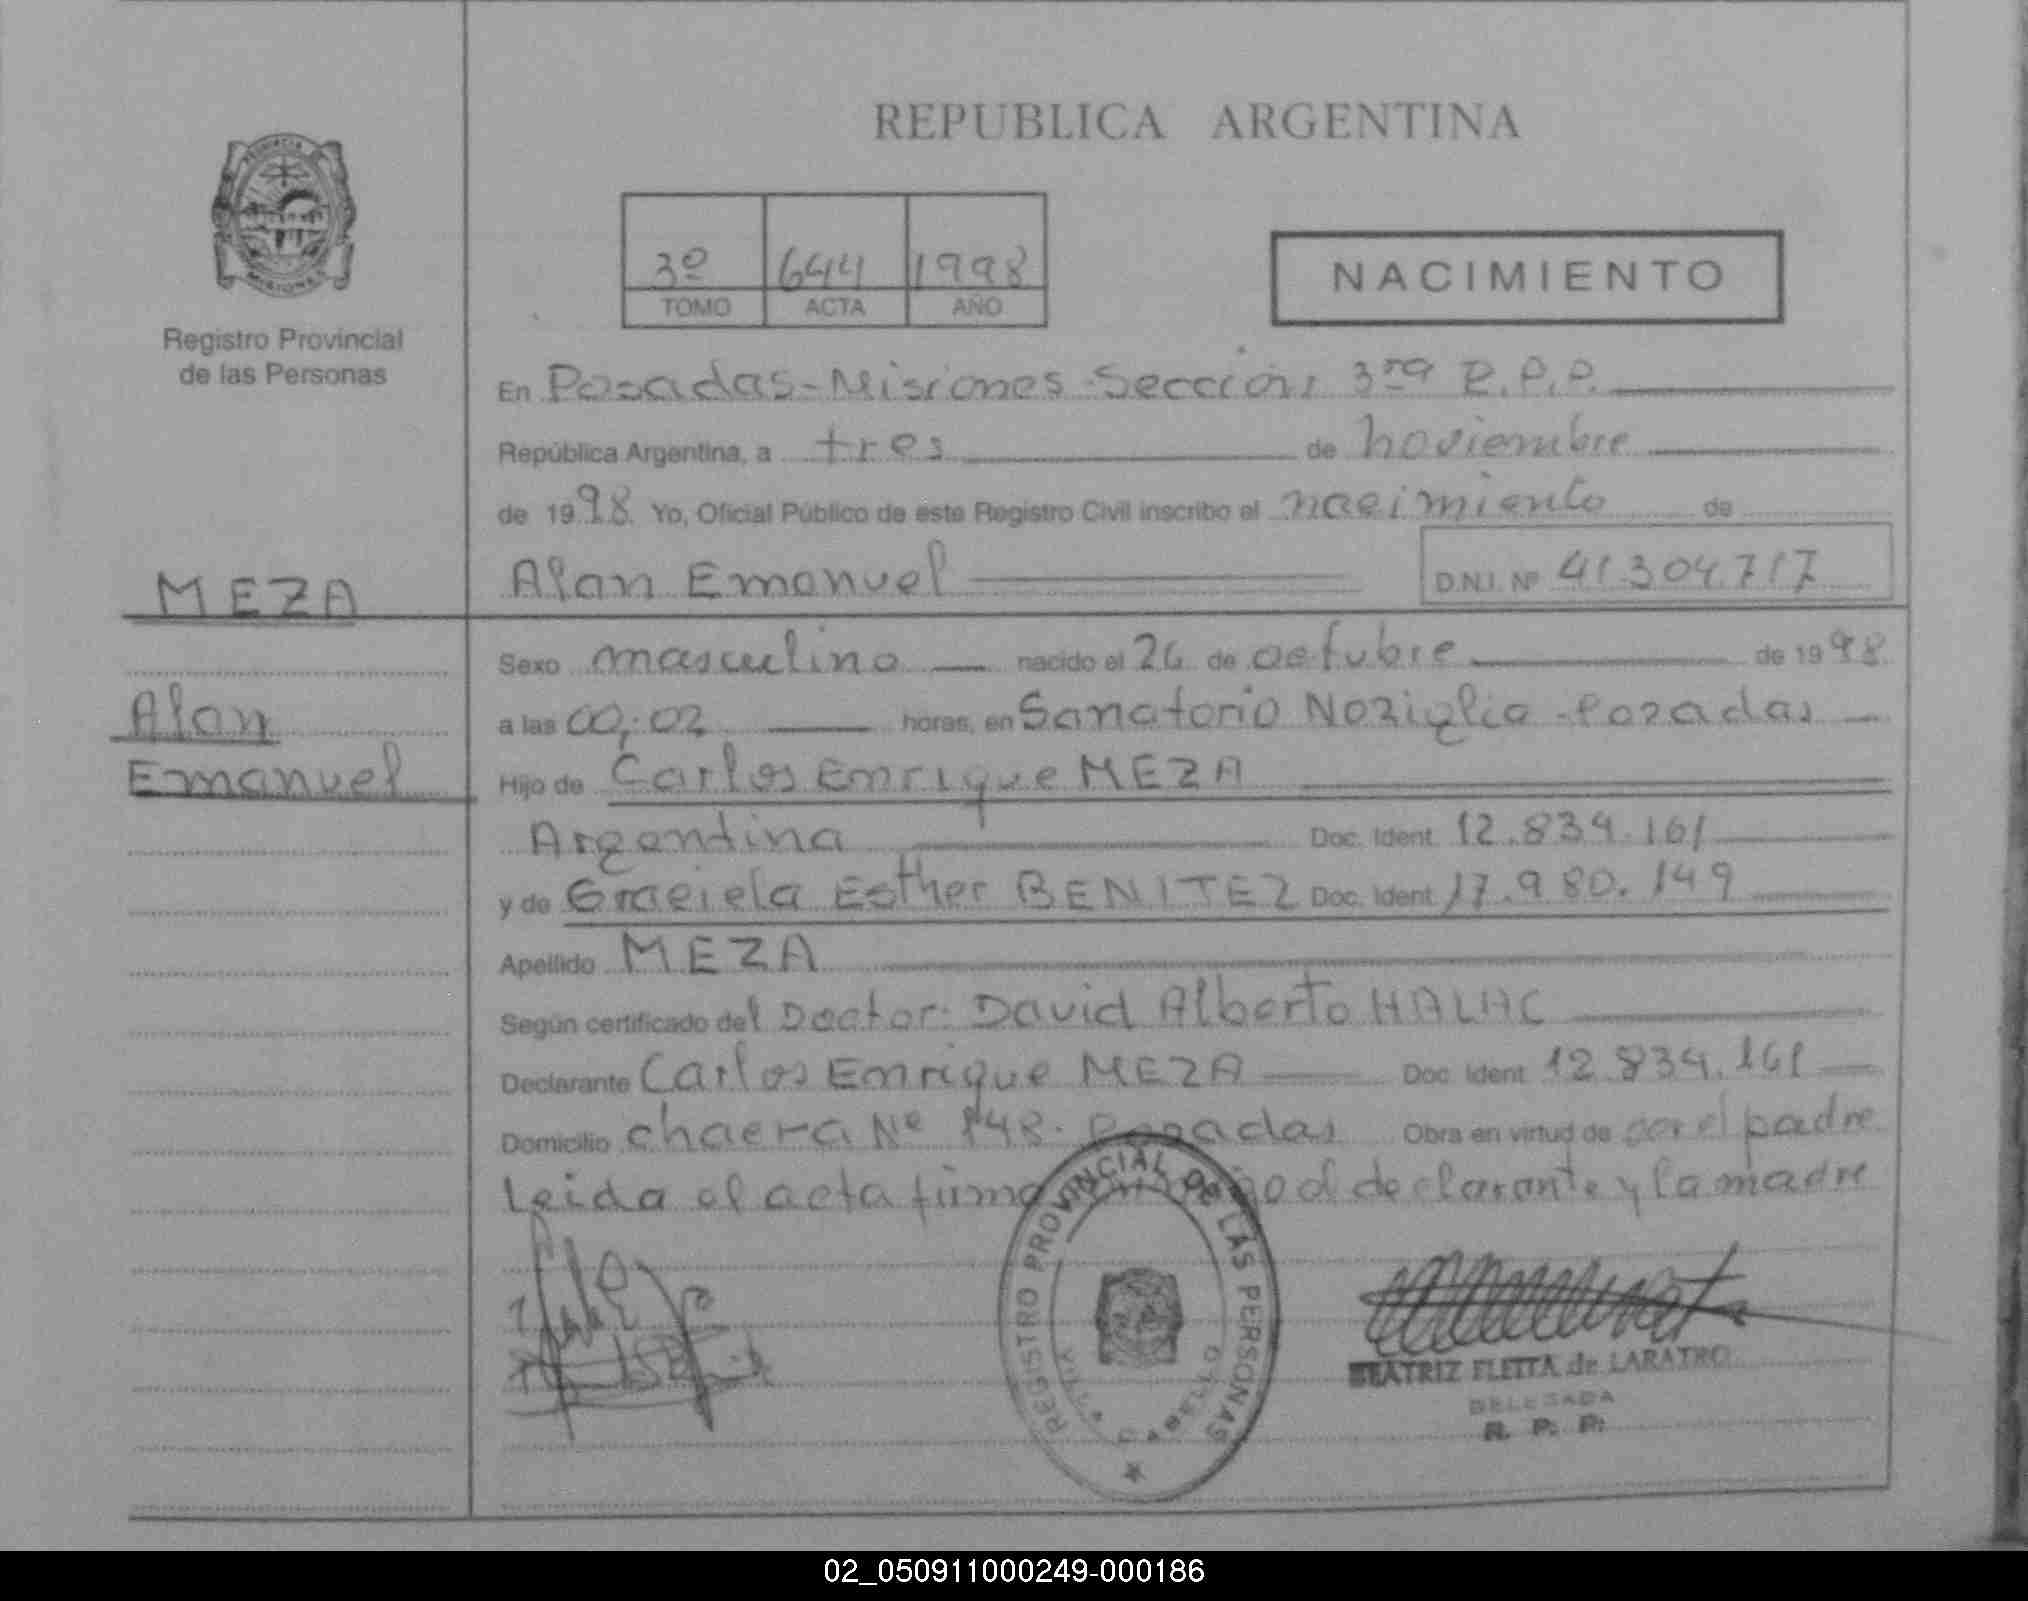 REPUBLICA ARGENTINA
PROVINCIA
MISIONES
Registro Provincial
de las Personas
3º 644 1998
TOMO ACTA AÑO
NACIMIENTO
En Posadas-Misiones-Sección 3ra R.P.P.
República Argentina, a tres de noviembre
de 1998. Yo, Oficial Público de este Registro Civil inscribo el nacimiento de
MEZA
Alan Emanuel D.N.I. Nº 41.304.717
Sexo masculino nacido el 26 de octubre de 1998
Alan
a las 00:02 horas, en Sanatorio Noziglia-Posadas
Emanuel
Hijo de Carlos Enrique MEZA
Argentina Doc. Ident. 12.834.161
y de Graciela Esther BENITEZ Doc. Ident. 17.980.149
Apellido MEZA
Según certificado del Doctor: David Alberto HALAC
Declarante Carlos Enrique MEZA Doc. Ident. 12.834.161
Domicilio chacra Nº 148. Posadas Obra en virtud de por el padre
Leida el acta firma el declarante y la madre
REGISTRO PROVINCIAL DE LAS PERSONAS
BEATRIZ FLEITA de LARATRO
DELEGADA
R. P. P.
02_050911000249-000186